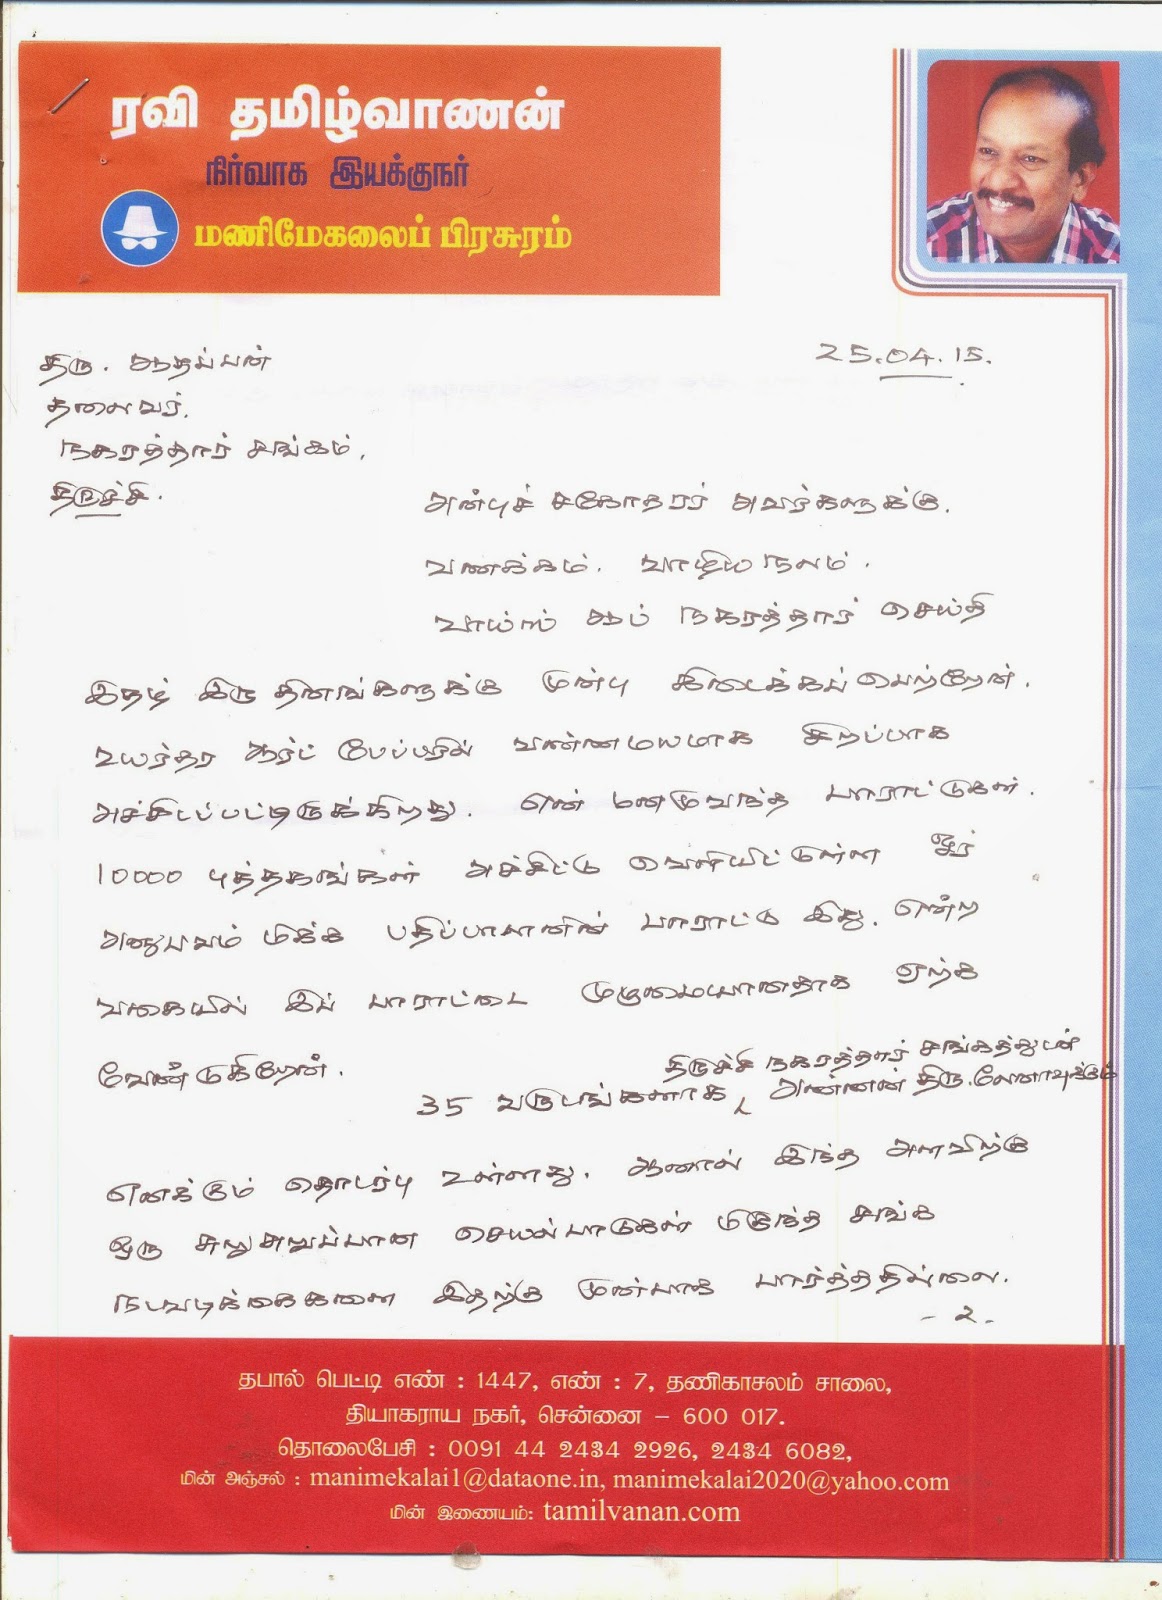 ரவி தமிழ்வாணன்
நிர்வாக இயக்குநர்
மணிமேகலைப் பிரசுரம்
25.04.15.
திரு. ஆதப்பன்
தலைவர்.
நகரத்தார் சங்கம்,
திருச்சி.
அன்புச் சகோதரர் அவர்களுக்கு,
வணக்கம். வாழிய நலம்.
வாய்ஸ் ஆப் நகரத்தார் செய்தி
இதழ் இரு தினங்களுக்கு முன்பு கிடைக்கப் பெற்றேன்.
உயர்தர ஆர்ட் பேப்பரில் வண்ணமயமாக சிறப்பாக
அச்சிடப்பட்டிருக்கிறது. என் மனமுவந்த பாராட்டுகள்.
10000 புத்தகங்கள் அச்சிட்டு வெளியிட்டுள்ள ஓர்
அனுபவம் மிக்க பதிப்பாளனின் பாராட்டு இது. என்ற
வகையில் இப் பாராட்டை முழுமையானதாக ஏற்க
வேண்டுகிறேன்.
திருச்சி நகரத்தார் சங்கத்துடன்
35 வருடங்களாக அண்ணன் திரு. லேனாவுக்கும்
எனக்கும் தொடர்பு உள்ளது. ஆனால் இந்த அளவிற்கு
ஒரு சுறுசுறுப்பான செயல்பாடுகள் மிகுந்த சங்க
நடவடிக்கைகளை இதற்கு முன்பாக பார்த்ததில்லை.
- 2.
தபால் பெட்டி எண் : 1447, எண் : 7, தணிகாசலம் சாலை,
தியாகராய நகர், சென்னை – 600 017.
தொலைபேசி : 0091 44 2434 2926, 2434 6082,
மின் அஞ்சல் : manimekalai1@dataone.in, manimekalai2020@yahoo.com
மின் இணையம்: tamilvanan.com